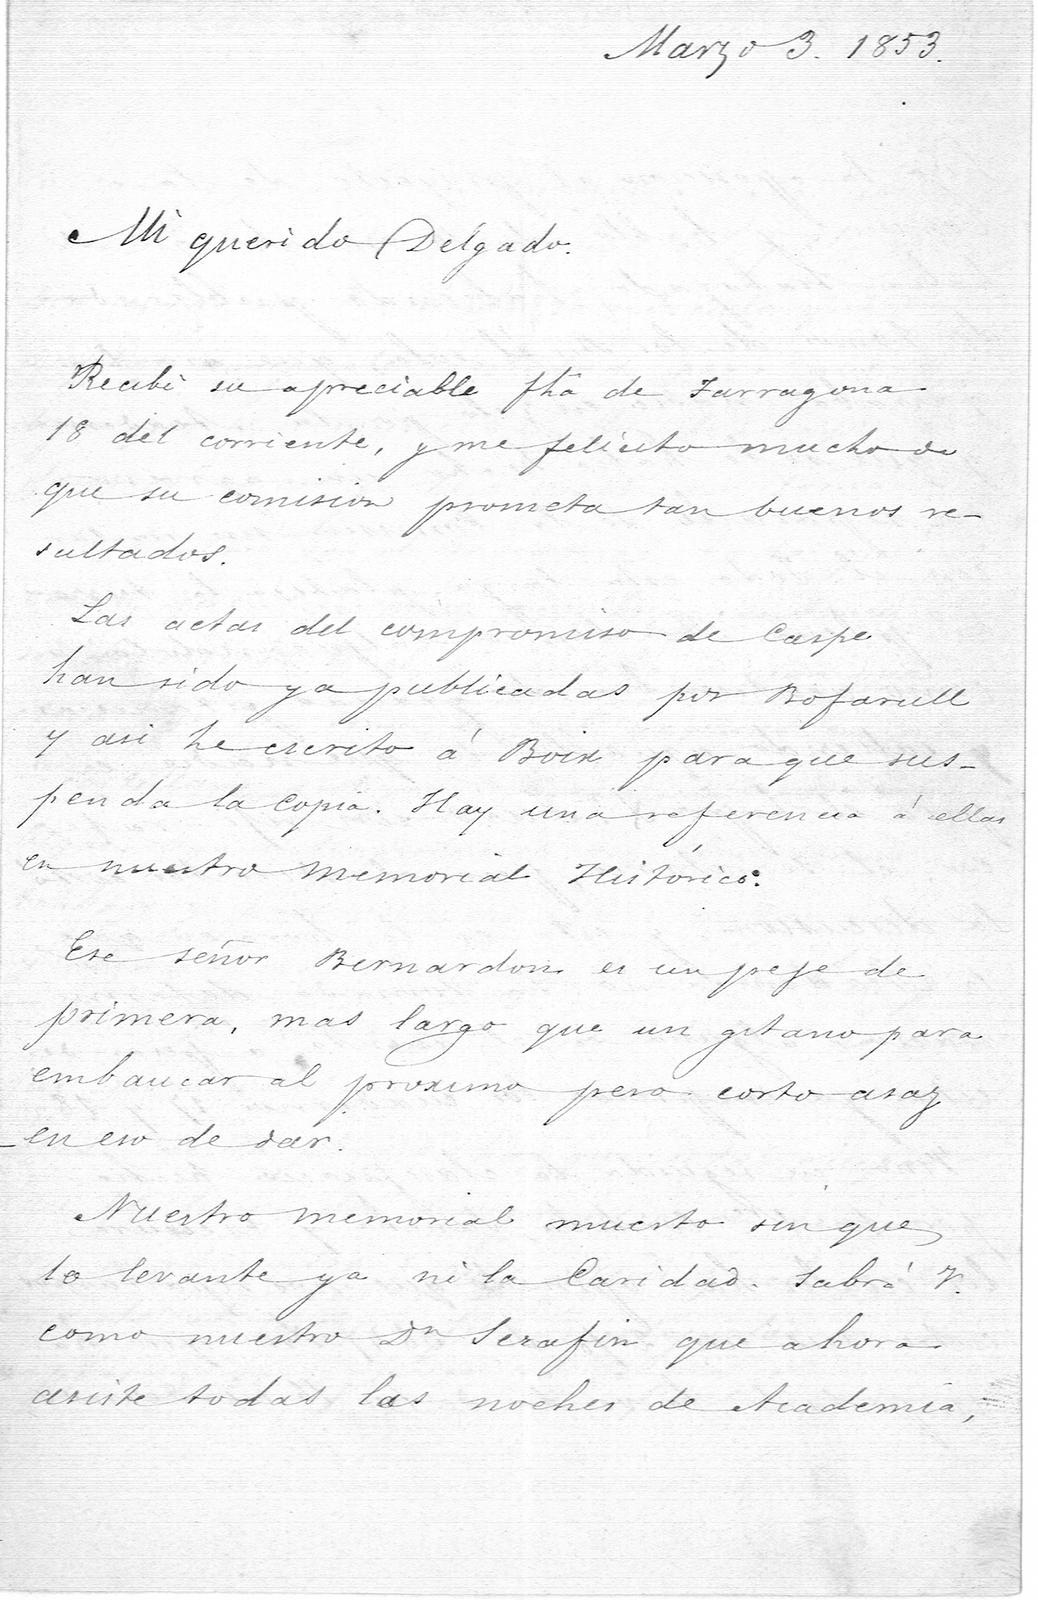 Marzo 3. 1853.
Mi querido Delgado.
Recibi su apreciable fha de Tarragona
18 del corriente, y me felicito mucho de
que su comision prometa tan buenos re-
sultados.
Las actas del compromiso de Caspe
han sido ya publicadas por Bofarull
y asi he escrito á Boix para que sus-
penda la copia. Hay una referencia á ellas
en nuestro memorial Histórico.
Ese señor Bernardon es un peje de
primera, mas largo que un gitano para
embaucar al proximo pero corto asaz
en eso de dar.
Nuestro memorial muerto sin que
lo levante ya ni la Caridad. Sabrá V.
como nuestro Dn Serafin que ahora
asiste todas las noches de Academia,